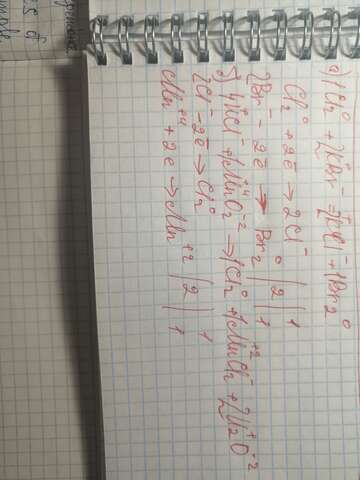 а) 1Cl₂⁰ + 2KBr⁻ = 2KCl⁻ + 1Br₂⁰
Cl₂⁰ + 2ē → 2Cl⁻ | | 1
2Br⁻ - 2ē → Br₂⁰ | 2 | 1
б) 4HCl⁻ + 1Mn⁺⁴O₂⁻² → 1Cl₂⁰ + 1Mn⁺²Cl₂⁻ + 2H₂⁺O⁻²
2Cl⁻ - 2ē → Cl₂⁰ | | 1
Mn⁺⁴ + 2ē → Mn⁺² | 2 | 1